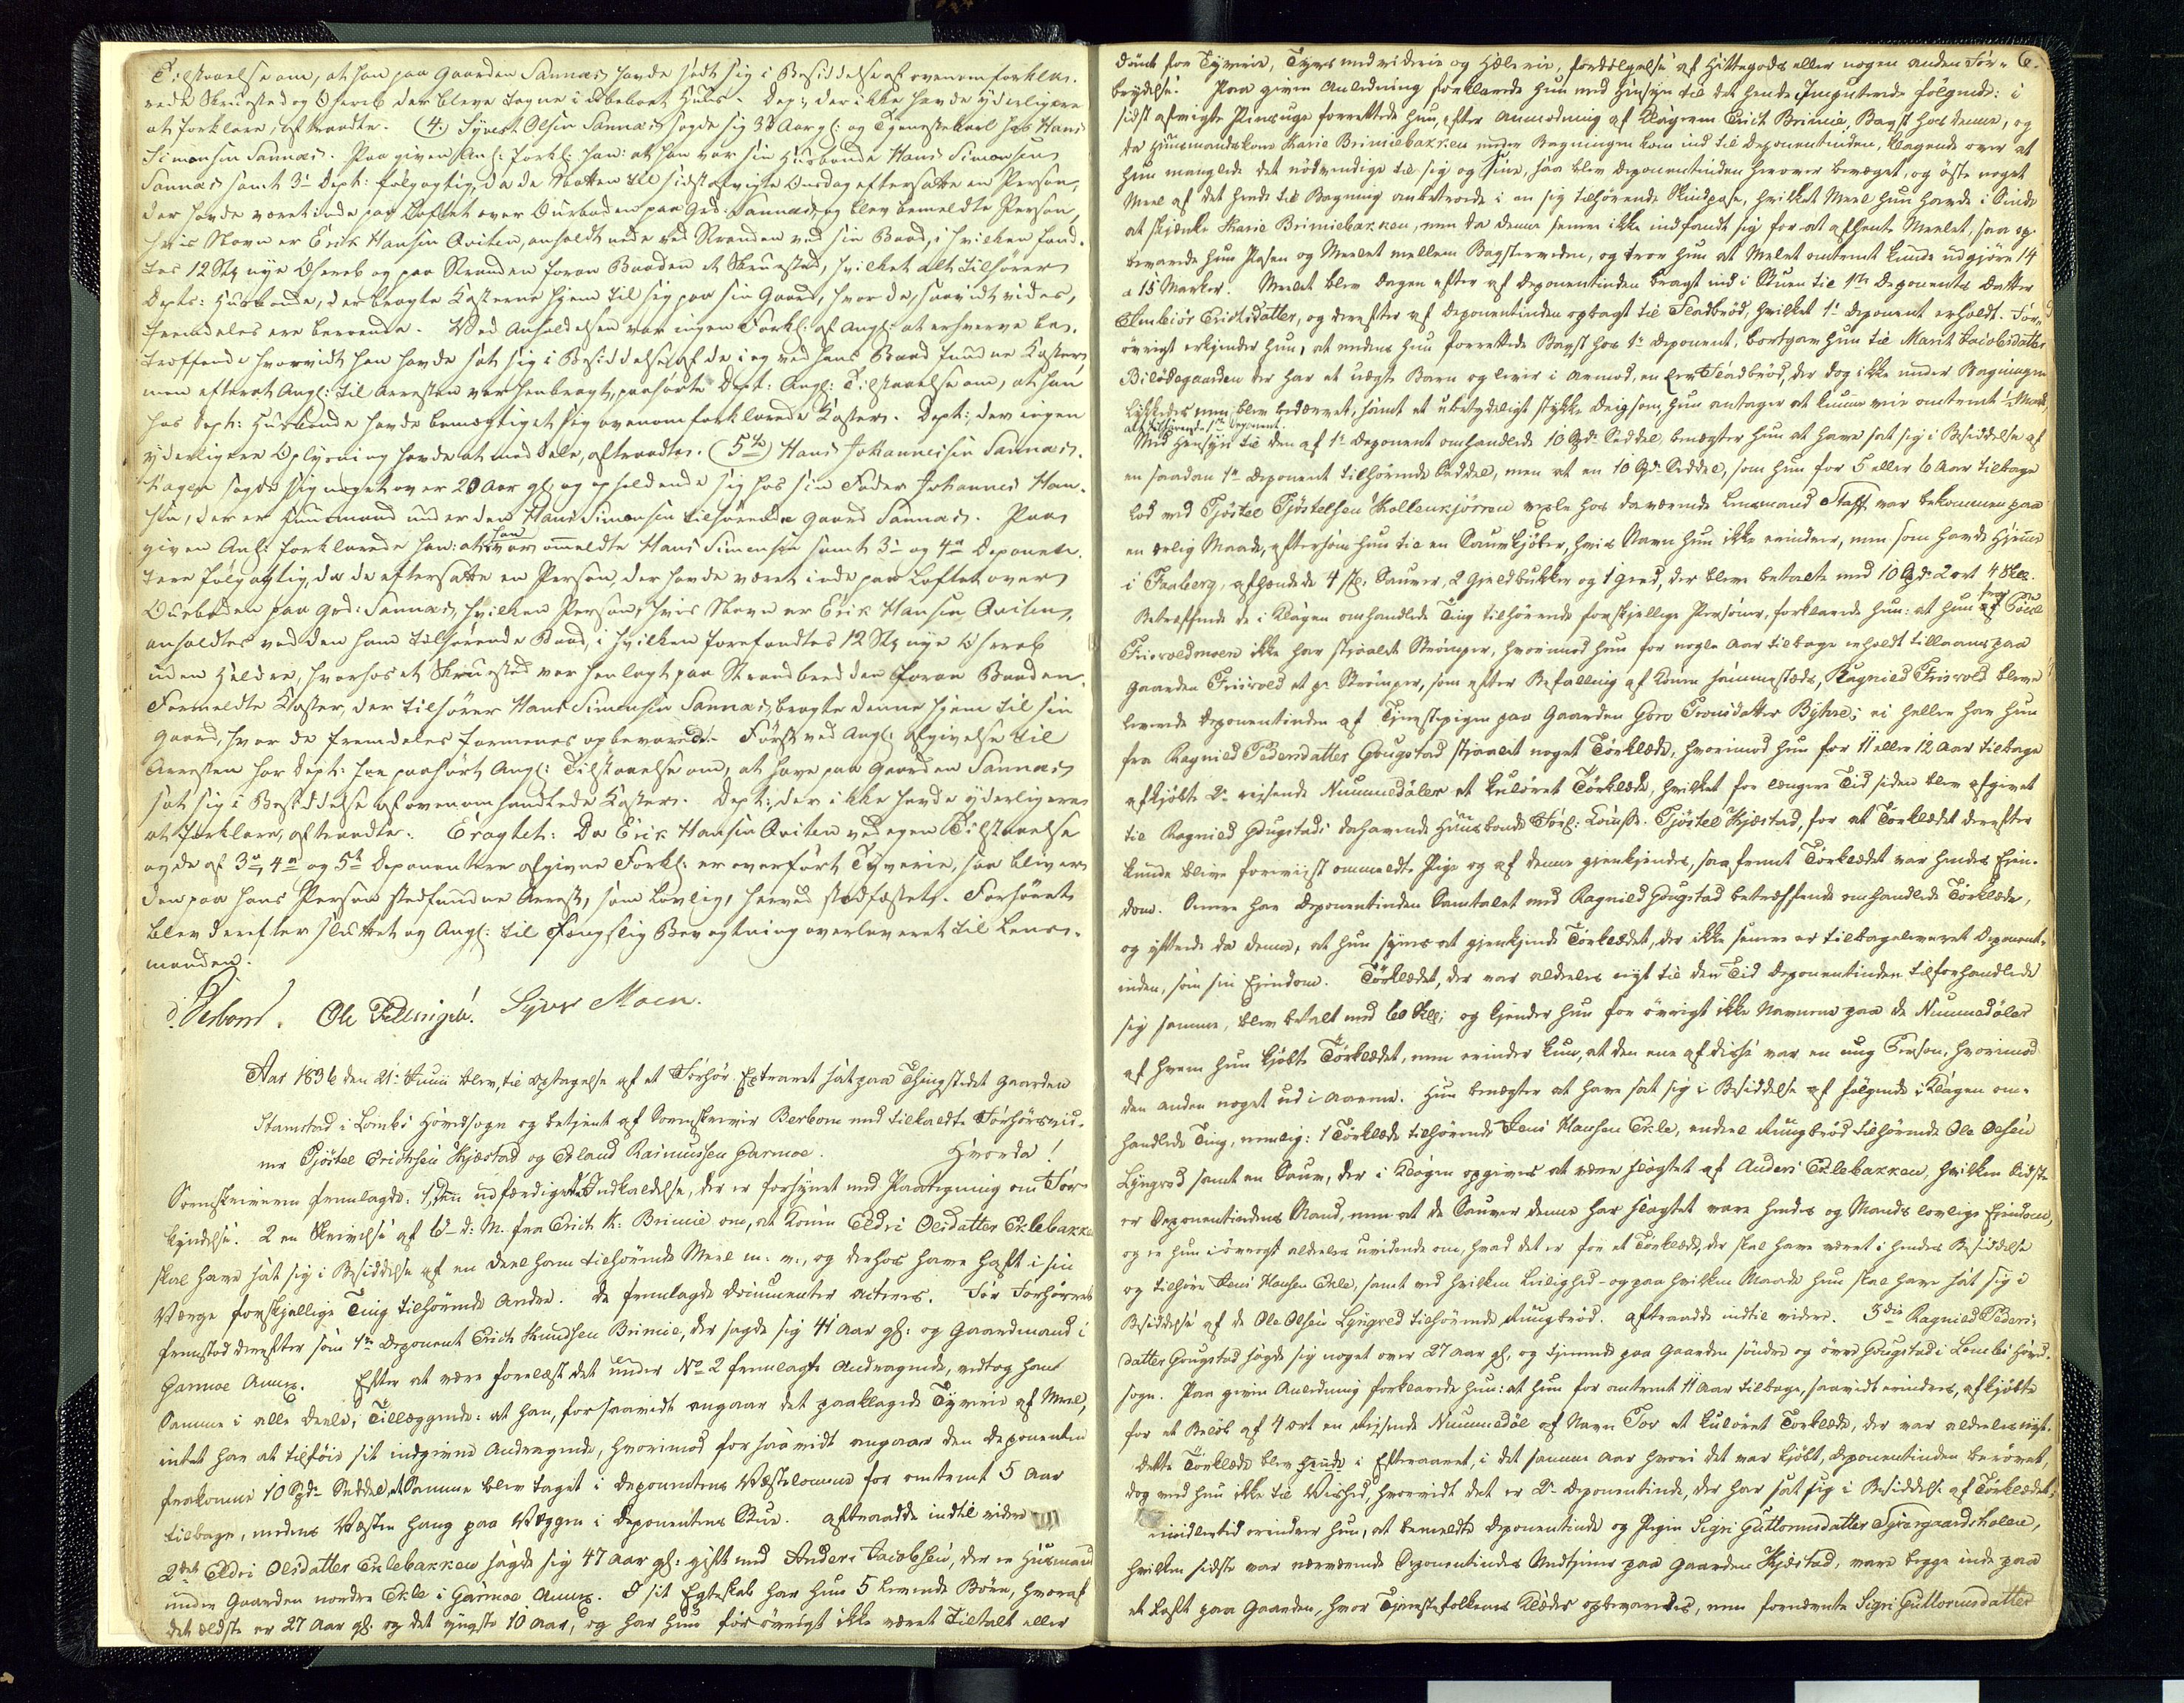 Tilstaaelse om, at han paa Gaarden Sannæs havde sadt sig i Besiddelse af ovenomforkla-
rede Skruestæd og Øserreb der bleve tagne i ubeboet Huus. Dep:, der ikke havde yderligere
at forklare, aftraadte. (4.) Syvert Olsen Sannæs sagde sig 38 Aar gl: og Tjenestekarl hos Hans
Simonsen Sannæs. Paa given Anl: forkl: han: at han var sin Huusbonde Hans Simonsen
Sannæs samt 3die Dept: følgagtig, da de Natten til sidstafvigte Onsdag eftersatte en Person,
der havde været inde paa Loftet over Buurboden paa Grd: Sannæs, og blev bemeldte Person,
hvis Navn er Erik Hansen Qviten, anholdt nede ved Stranden ved sin Baad, i hvilken fand-
tes 12 Stk nye Øserreb og paa Stranden foran Baaden et Skruestæd, hvilket alt tilhører
Depts: Huusbonde, der bragte Kosterne hjem til sig paa sin Gaard, hvor de, saavidt vides,
fremdeles ere beroende. Ved Anholdelsen var ingen Forkl: af Angl: at erhverve be-
træffende hvorvidt han havde sat sig i Besiddelse af de i og ved hans Baad fundne Koster,
men efterat Angl: til Arresten var henbragt, paahørte Dept: Angl: Tilstaaelse om, at han
hos Dept: Huusbonde havde bemægtiget sig ovenomforklarede Koster. Dept:, der ingen
yderligere Oplysning havde at meddele, aftraadte. (5te) Hans Johannesen Sannæs-
hagen sagde sig noget over 20 Aar gl: og opholdende sig hos sin Fader Johannes Han-
sen, der er Huusmand under den Hans Simonsen tilhørende Gaard Sannæs. Paa
given Anl: forklarede han: at han var ommeldte Hans Simonsen samt 3die og 4de Deponen-
tere følgagtig, da de eftersatte en Person, der havde været inde paa Loftet over
Buurboden paa Grd: Sannæs, hvilken Person, hvis Navn er Erik Hansen Qviten,
anholdtes ved den ham tilhørende Baad, i hvilken forefandtes 12 Stk nye Øserreb
uden Hylder, hvorhos et Skruestæd var henlagt paa Strandbredden foran Baaden.
Formeldte Koster, der tilhører Hans Simonsen Sannæs, bragte denne hjem til sin
Gaard, hvor de fremdeles formenes opbevarede. Først ved Angl: Afgivelse til
Arresten har Dept: paahørt Angl: Tilstaaelse om, at have paa Gaarden Sannæs
sat sig i Besiddelse af ovenomhandlede Koster. Dept:, der ikke havde yderligere
at forklare, aftraadte. Eragtet: Da Erik Hansen Qviten ved egen Tilstaaelse
og de af 3die, 4de og 5te Deponentere afgivne Forkl: er overført Tyverie, saa bliver
den paa hans Person stedfundne Arrest, som lovlig, herved stadfæstet. Forhøret
blev derefter sluttet og Angl: til Fængslig Bevogtning overleveret til Lens-
manden.
Berbom. Ole Pillingen. Syver Moen.
Aar 1836 den 21de Junii blev, til Optagelse af et Forhør, Extraret sat paa Thingstedet Gaarden
Stamstad i Lombs Hovedsogn og betjent af Sorenskriver Berbom med tilkaldte Forhørsvid-
ner Tjøstel Erichsen Kjæstad og Erland Rasmussen Garmoe. Hvorda!
Sorenskriveren fremlagde: 1, Den udfærdigede Indkaldelse, der er forsynet med Paategning om For-
kyndelse. 2 en Skrivelse af 6 d: M. fra Erich K: Brimie om, at Konen Eldri Olsdatter Eklebakken
skal have sat sig i Besiddelse af en Deel ham tilhørende Meel m. v., og derhos have haft i sin
Værge forskjellige Ting tilhørende Andre. De fremlagde Documenter acteres. For Forhørret
fremstod derefter som 1ste Deponent Erich Knudsen Brimie, der sagde sig 41 Aar gl: og Gaardmand i
Garmoe Annex. Efter at være forelæst det under No 2 fremlagte Andragende, vedtog han
Samme i alle Deele, Tillæggende: at han, forsaavidt angaar det paaklagede Tyverie af Meel,
intet har at tilføie sit indgivne Andragende, hvorimod forsaavidt angaar den Deponenten
frakomne 10 Spd: Seddel, at Samme blev taget i Deponentens Vestelomme for omtrent 5 Aar
tilbage, medens Vesten hang paa Væggen i Deponentens Stue. Aftraadte indtil videre
2den Eldri Olsdatter Eklebakken sagde sig 47 Aar gl: gift med Anders Jacobsen, der er Huusmand
under Gaarden nordre Ekle i Garmoe Annex. I sit Egteskab har hun 5 levende Børn, hvoraf
det ældste er 27 Aar gl: og det yngste 10 Aar, og har hun før øvrigt ikke været Tiltalt eller
6.
dømt for Tyverie, Tyvs medviderie og Hælerie, fordølgelse af Hittegods eller nogen anden For-
brydelse. Paa given Anledning forklarede hun med Hensyn til det hende Imputerede følgende: i
sidst afvigte Pintseuge forrettede hun, efter Anmodning af Klageren Erich Brimie, Bagst hos denne, og
da Huusmandskone Marie Brimiebakken under Bagningen kom ind til Deponentinden, klagende over at
hun manglede det nødvendige til sig og Sine, saa blev Deponentinden herover bevæget, og øste noget
Meel af det hende til Bagning anbetroede i en sig tilhørende Skindpose, hvilket Meel hun havde i Sinde
at skjænke Marie Brimiebakken, men da denne senere ikke indfandt sig for at afhente Meelet, saa op-
bevarede hun Posen og Meelet mellem Bagsteveden, og troer hun at Melet omtrent kunde udgjøre 14
a 15 Marker. Meelet blev Dagen efter af Deponentinden bragt ind i Stuen til 1ste Deponents Datter
Embiør Erichsdatter, og derefter af Deponentinden opbagt til Fladbrød, hvilket 1ste Deponent erholdt. For-
øvrigt erkjender hun, at medens hun forrettede Bagst hos 1ste Deponent, bortgav hun til Marit Jacobsdatter
Bilødegaarden der har et uægte Barn og lever i Armod, en Lev Fladbrød, der dog ikke under Bagningen
lykkedes men blev bedærvet, samt et ubetydeligt stykke Deig, som hun antager at kunne veie omtrent 1 Mark,
alt tilhørende 1ste Deponent.
Med Hensyn til den af 1ste Deponent omhandlede 10 Spd: Seddel, benægter hun at have sat sig i Besiddelse af
en saadan 1ste Deponent tilhørende Seddel, men at en 10 Spd: Seddel, som hun for 5 eller 6 Aar tilbage
lod ved Tjøstel Tjøstelsen Kollenkjørren vexle hos daværende Lensmand Staff var bekommen paa
en ærlig Maade, eftersom hun til en Sauekjøber, hvis Navn hun ikke erindrer, men som havde Hjemme
i Faaberg, afhændede 4 stk: Sauer, 2 Gjeldbukker og 1 Gjed, der bleve betalte med 10 Spd: 2 ort 4 Skil.
Betræffende de i Klagen omhandlede Ting tilhørende forskjellige Personer, forklarede hun: at hun fra
Friisvoldmoen ikke har stjaalet Strømper, hvorimod hun for nogle Aar tilbage erholdt tillaans paa
Gaarden Friisvold et pr Strømper, som efter Befalling af Konen sammesteds, Ragnild Friisvold bleve
leverede Deponentinden af Tjenestepigen paa Gaarden Goro Tronsdatter Byhre; ei heller har hun
fra Ragnild Pedersdatter Gougstad stjaalet noget Tørklæde, hvorimod hun for 11 eller 12 Aar tilbage
afkjøbte 2de reisende Nummedøler et kuløret Tørklæde, hvilket for længere Tid siden blev afgivet
til Ragnild Gougstads dahavende Huusbonde Forl: Comss: Tjøstel Kjæstad, for at Tørklædet derefter
kunde blive foreviist ommeldte Pige og af denne gjenkjendes, saafremt Tørklædet var hendes Eien-
dom. Senere har Deponentinden Samtalet med Ragnild Gougstad betræffende omhandlede Tørklæde,
og yttrede da denne, at hun synes at gjenkjende Tørklædet, der ikke senere er tilbageleveret Deponent-
inden, som sin Eiendom. Tørklædet, der var aldeles nyt til den Tid Deponentinden tilforhandlede
sig samme, blev betalt med 60 Skl; og kjender hun for øvrigt ikke Navnene paa de Nummedøler
af hvem hun kjøbte Tørklædet, men erindrer kun, at den ene af disse var en ung Person, hvorimod
den anden noget ud i Aarene. Hun benægter at have sat sig i Besiddelse af følgende i Klagen om-
handlede Ting, nemlig: 1 Tørklæde tilhørende Jens Hansen Ekle, endeel Rugbrød tilhørende Ole Olsen
Lyngved samt en Sau, der i Klagen opgives at være slagtet af Anders Eklebakken, hvilken sidste
er Deponentindens Mand, men at de Sauer denne har slagtet vare hendes og Mands lovlige Eiendom,
og er hun iøvrigt aldeles uvidende om, hvad det er for et Tørklæde, der skal have været i hendes Besiddelse
og tilhøre Jens Hansen Ekle, samt ved hvilken Leilighed og paa hvilken Maade hun skal have sat sig i
Besiddelse af de Ole Olsen Lyngved tilhørende Rugbrød. Aftraadde indtil videre. 3die Ragnild Peders-
datter Gougstad sagde sig noget over 27 Aar gl, og tjenende paa Gaarden søndre og øvre Gougstad i Lombs Hoved-
sogn. Paa given Anledning forklarede hun: at hun for omtrent 11 Aar tilbage, saavidt erindres, afkjøbte
for et Beløb af 4 ort en reisende Nummedøl af Navn Tor et kuløret Tørklæde, der var aldeles nyt.
Dette Tørklæde blev hende i Efteraaret, i det samme Aar hvori det var kjøbt, Deponentinden berøvet,
dog veed hun ikke til Vished, hvorvidt det er 2de Deponentinde, der har sat sig i Besiddelse af Tørklædet;
imidlertid erindrer hun, at bemeldte Deponentinde og Pigen Sigri Guttormsdatter Sygergaardskolen,
hvilken sidste var nærværende Deponentindes Medtjener paa Gaarden Kjæstad, vare begge inde paa
et Loft paa Gaarden, hvor Tjenestefolkenes Klæder opbevaredes, men fornævnte Sigri Guttormsdatter